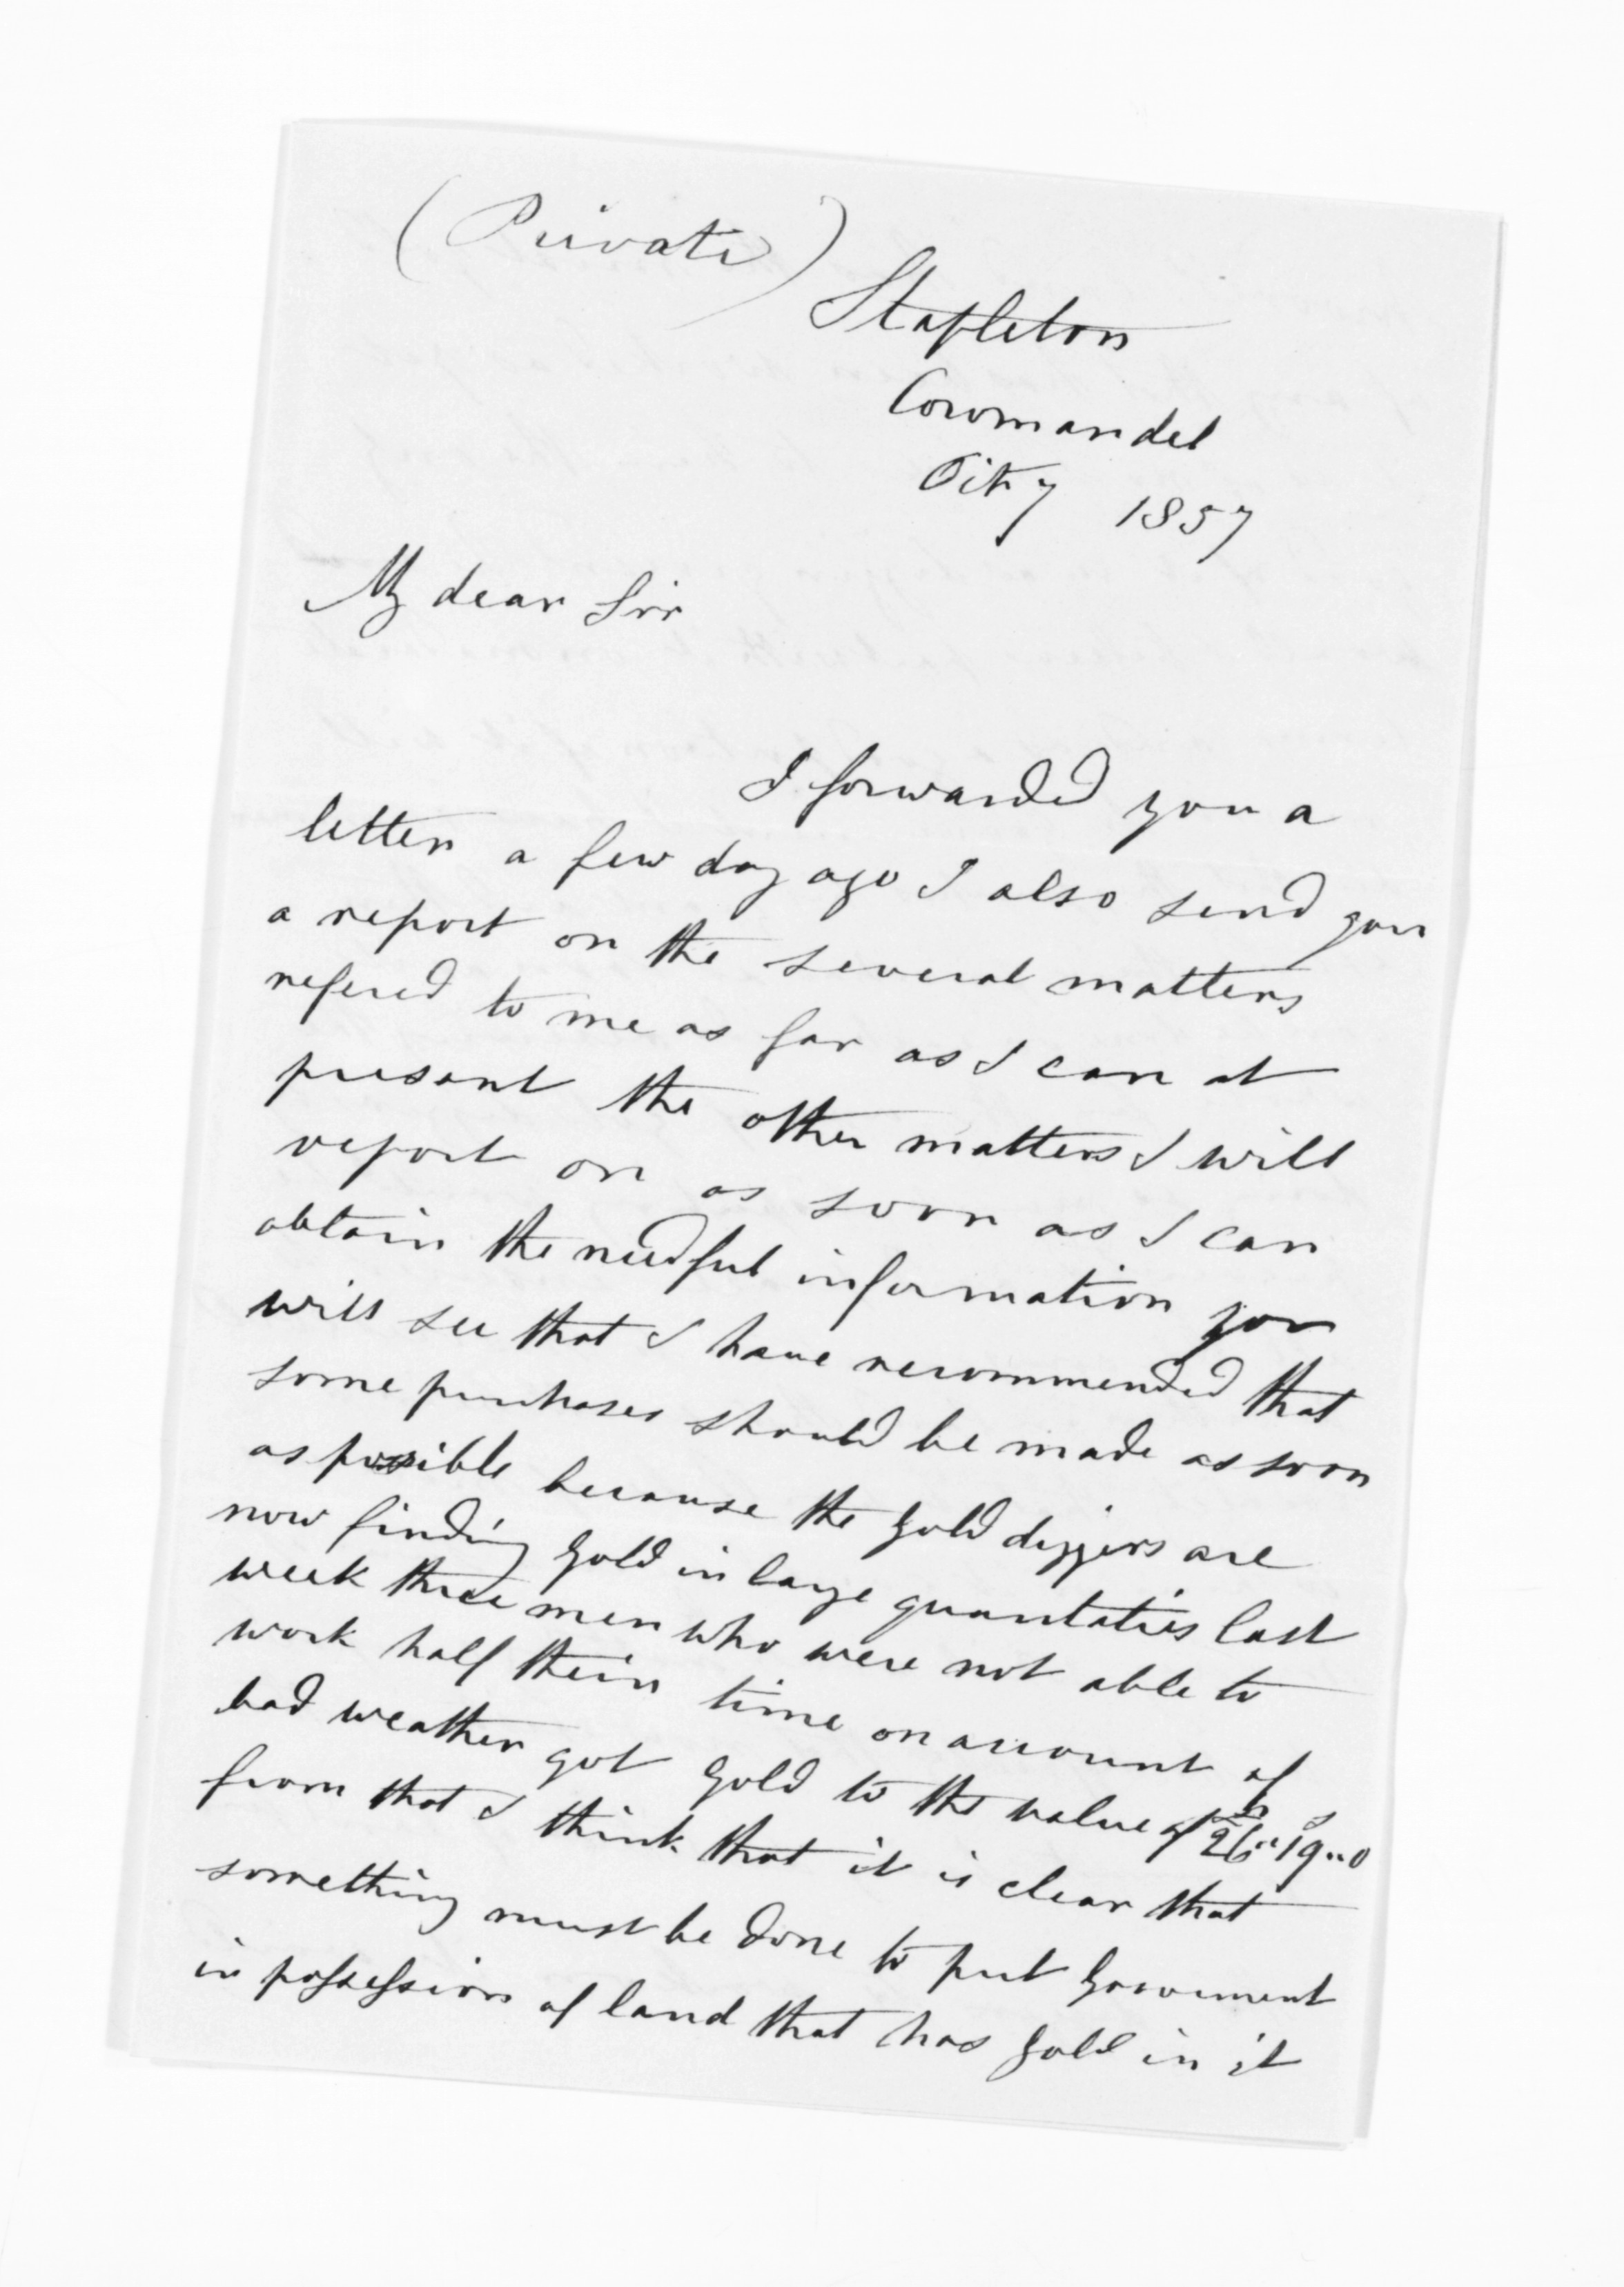 (Private)
Stapleton
Coromandel
Oct 7 1857
My dear Sir
I forwarded you a
letter a few day ago I also send you
a report on the several matters
refered to me as far as I can at
present the other matters I will
report on as soon as I can
obtain the needful information you
will see that I have recommended that
some purchases should be made as soon
as possible because the gold diggers are
now finding gold in large quantaties last
week three men who were not able to
work half their time on account of
bad weather got gold to the value of £26"19"0
from that I think that it is clear that
something must be done to put Government
in possession of land that has gold in it